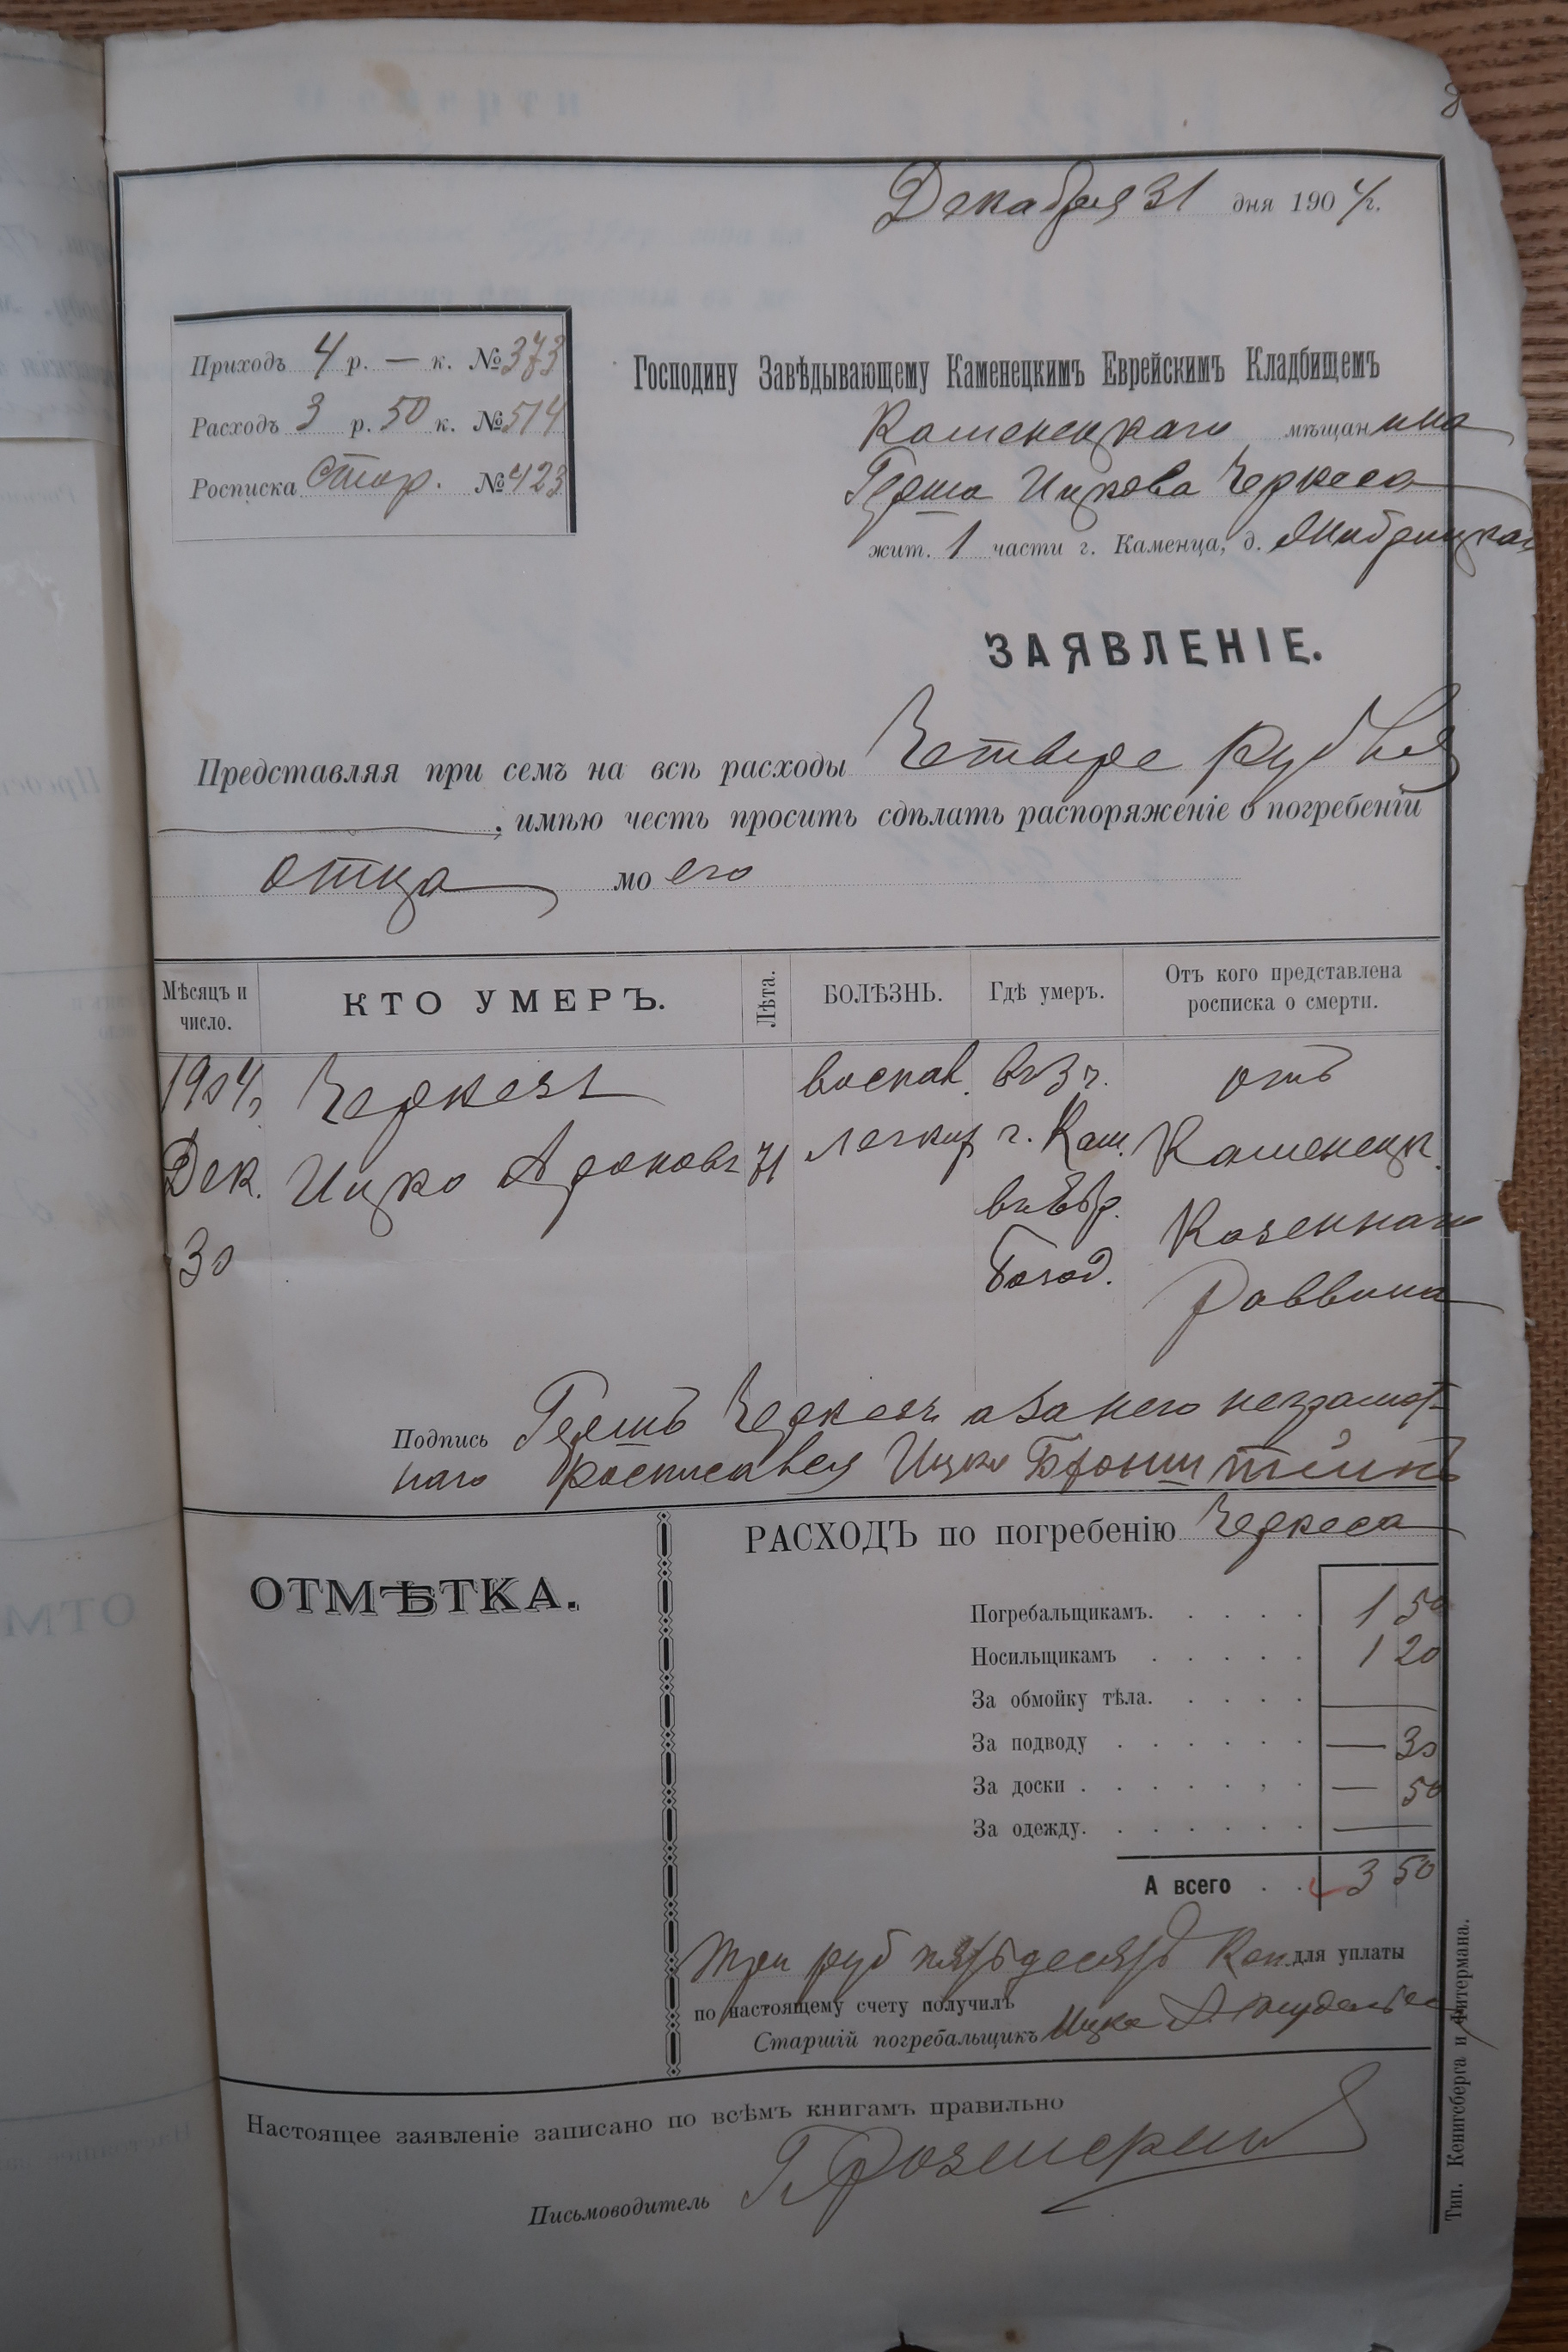 Декабря 31 дня 1904 г.
Приходъ 4 р. — к. № 373
Расходъ 3 р. 50 к. № 514
Росписка Стар. № 423
Господину Завѣдывающему Каменецкимъ Еврейскимъ Кладбищемъ
Каменецкаго мѣщанина
Герша Ицкова Черкеса
жит. 1 части г. Каменца, д.
ЗАЯВЛЕНІЕ.
Представляя при семъ на всѣ расходы Четыре рубля
, имѣю честь просить сдѣлать распоряженіе о погребеніи
отца моего
Мѣсяцъ и число.
КТО УМЕРЪ.
Лѣта.
БОЛѢЗНЬ.
Гдѣ умеръ.
Отъ кого представлена росписка о смерти.
1904 Черкесъ воспал. въ 3 ч. отъ
Дек. Ицко Ароновъ 71 легких г. Кам. Каменецк.
30 въ Евр. Казеннаго
богад. Раввина
Подпись Гершъ Черкесъ а за него неграмот-
наго росписался Ицко Бронштейнъ
ОТМѢТКА.
РАСХОДЪ по погребенію Черкеса
Погребальщикамъ. 1 50
Носильщикамъ 1 20
За обмойку тѣла. —
За подводу — 30
За доски — 50
За одежду. —
А всего 3 50
Три руб пятьдесятъ Коп. для уплаты
по настоящему счету получилъ
Старшій погребальщикъ Ицко
Настоящее заявленіе записано по всѣмъ книгамъ правильно
Письмоводитель
Тип. Кенигсберга и Фитермана.